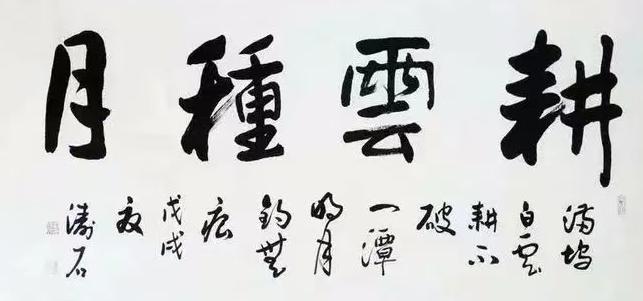 耕雲種月
滿塢
白雲
耕不
破
一潭
明月
釣無
痕
戊戌
夏
濤石